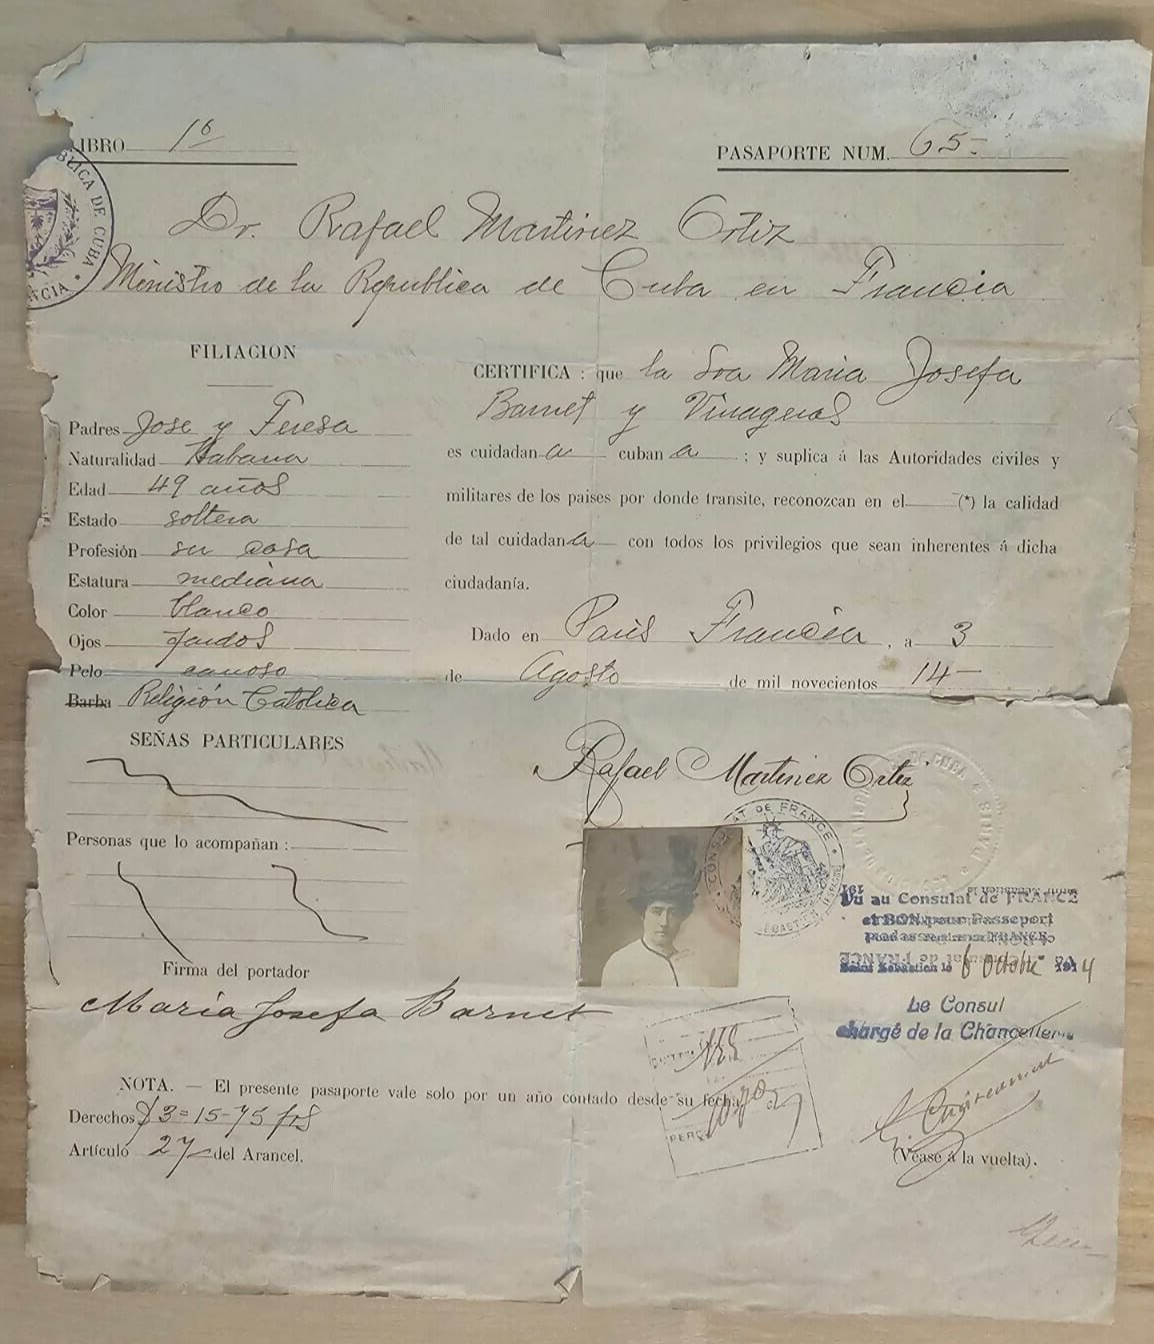 LIBRO 1º
PASAPORTE NUM. 65-
BLICA DE CUBA
NCIA
Dr. Rafael Martinez Ortiz
Ministro de la Republica de Cuba en Francia
FILIACION
Padres Jose y Teresa
Naturalidad Habana
Edad 49 años
Estado soltera
Profesión su casa
Estatura mediana
Color blanco
Ojos pardos
Pelo canoso
Barba Religión Católica
SEÑAS PARTICULARES
Personas que lo acompañan :
Firma del portador
Maria Josefa Barnet
CERTIFICA : que la Sra Maria Josefa
Barnet y Vinageras
es cuidadan a cuban a ; y suplica á las Autoridades civiles y
militares de los paises por donde transite, reconozcan en el (*) la calidad
de tal cuidadan a con todos los privilegios que sean inherentes á dicha
ciudadanía.
Dado en Paris Francia , a 3
de Agosto de mil novecientos 14-
Rafael Martinez Ortiz
CONSULAT DE FRANCE
CUBA
PARIS
Vu au Consulat de FRANCE
et BON pour Passeport
Saint Sébastien le 6 Octobre 1914
Le Consul
chargé de la Chancellerie
NOTA. — El presente pasaporte vale solo por un año contado desde su fecha
Derechos $3=15-75 frs
Artículo 27 del Arancel.
(Véase á la vuelta).